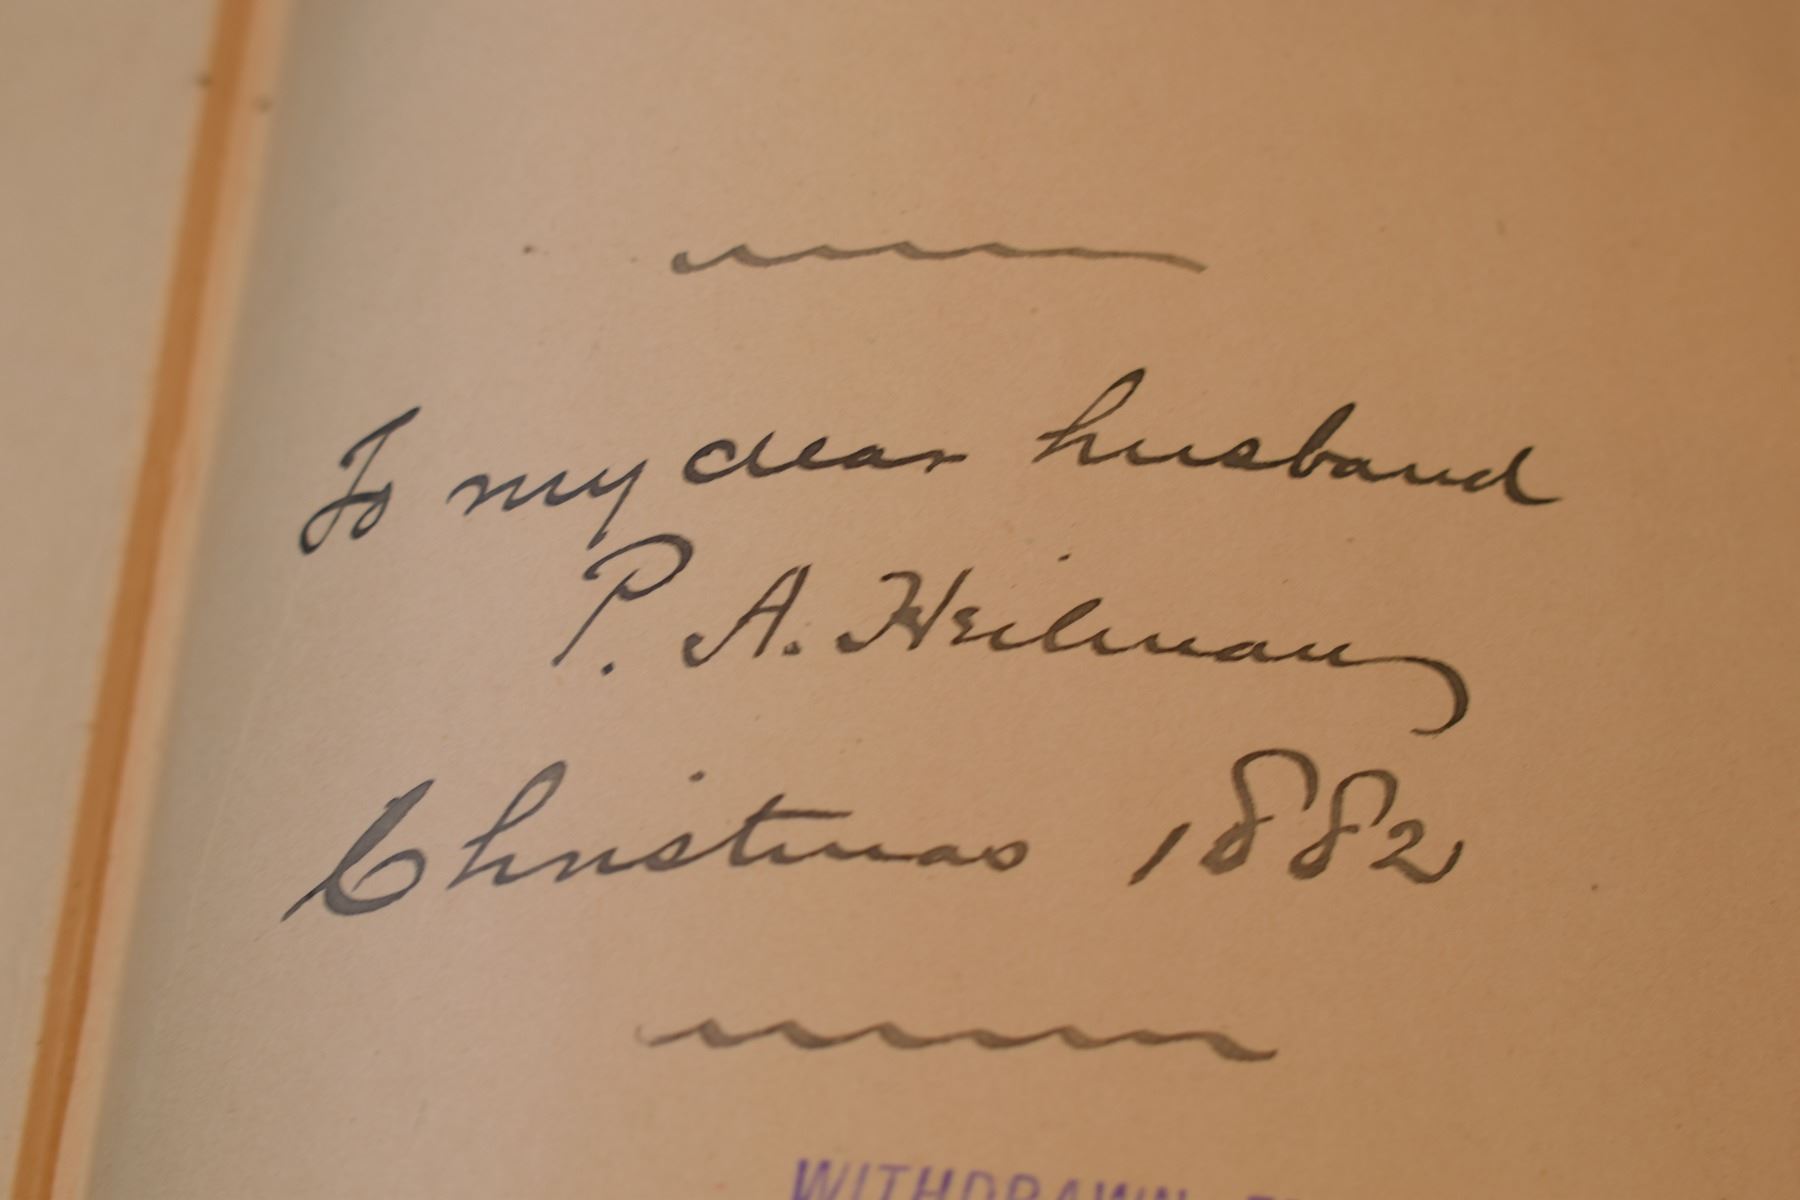 To my dear husband
P. A. Heilman
Christmas 1882
WITHDRAWN